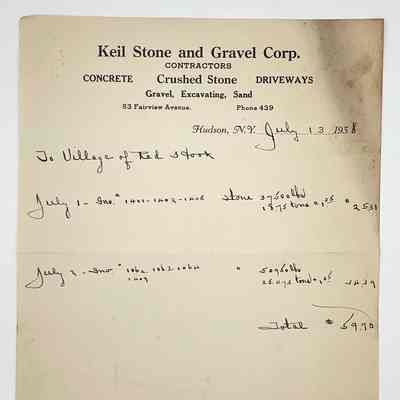 Keil Stone and Gravel Corp.
CONTRACTORS
CONCRETE Crushed Stone DRIVEWAYS
Gravel, Excavating, Sand
53 Fairview Avenue. Phone 439
Hudson, N.Y. July 13 1938
To Village of Red Hook
July 1 - Inv. 1401-1402-1405 Stone 37500 lbs
18.75 tons @ 1.35 " 25.31
July 2 - Inv. " 50950 lbs
1409 25.475 tons @ 1.35 34.39
Total $ 59.70